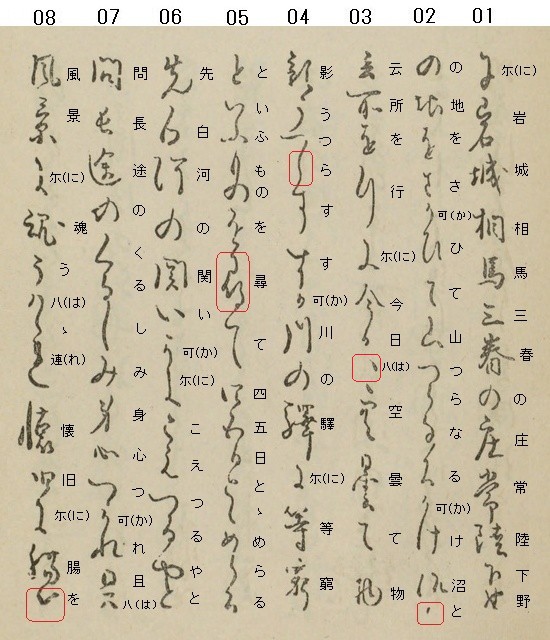 08 07 06 05 04 03 02 01
尓(に)岩城相馬三春の庄常陸下野
の地をさ可(か)ひて山つらなる可(か)け沼と
云所を行尓(に)今日八(は)空曇て物
影うつらすす可(か)川の驛尓(に)等窮
といふものを尋て四五日とゝめらる
先白河の関い可(か)尓(に)こえつるやと
問長途のくるしみ身心つ可(か)れ且八(は)
風景尓(に)魂う八(は)ゝ連(れ)懐旧尓(に)腸を